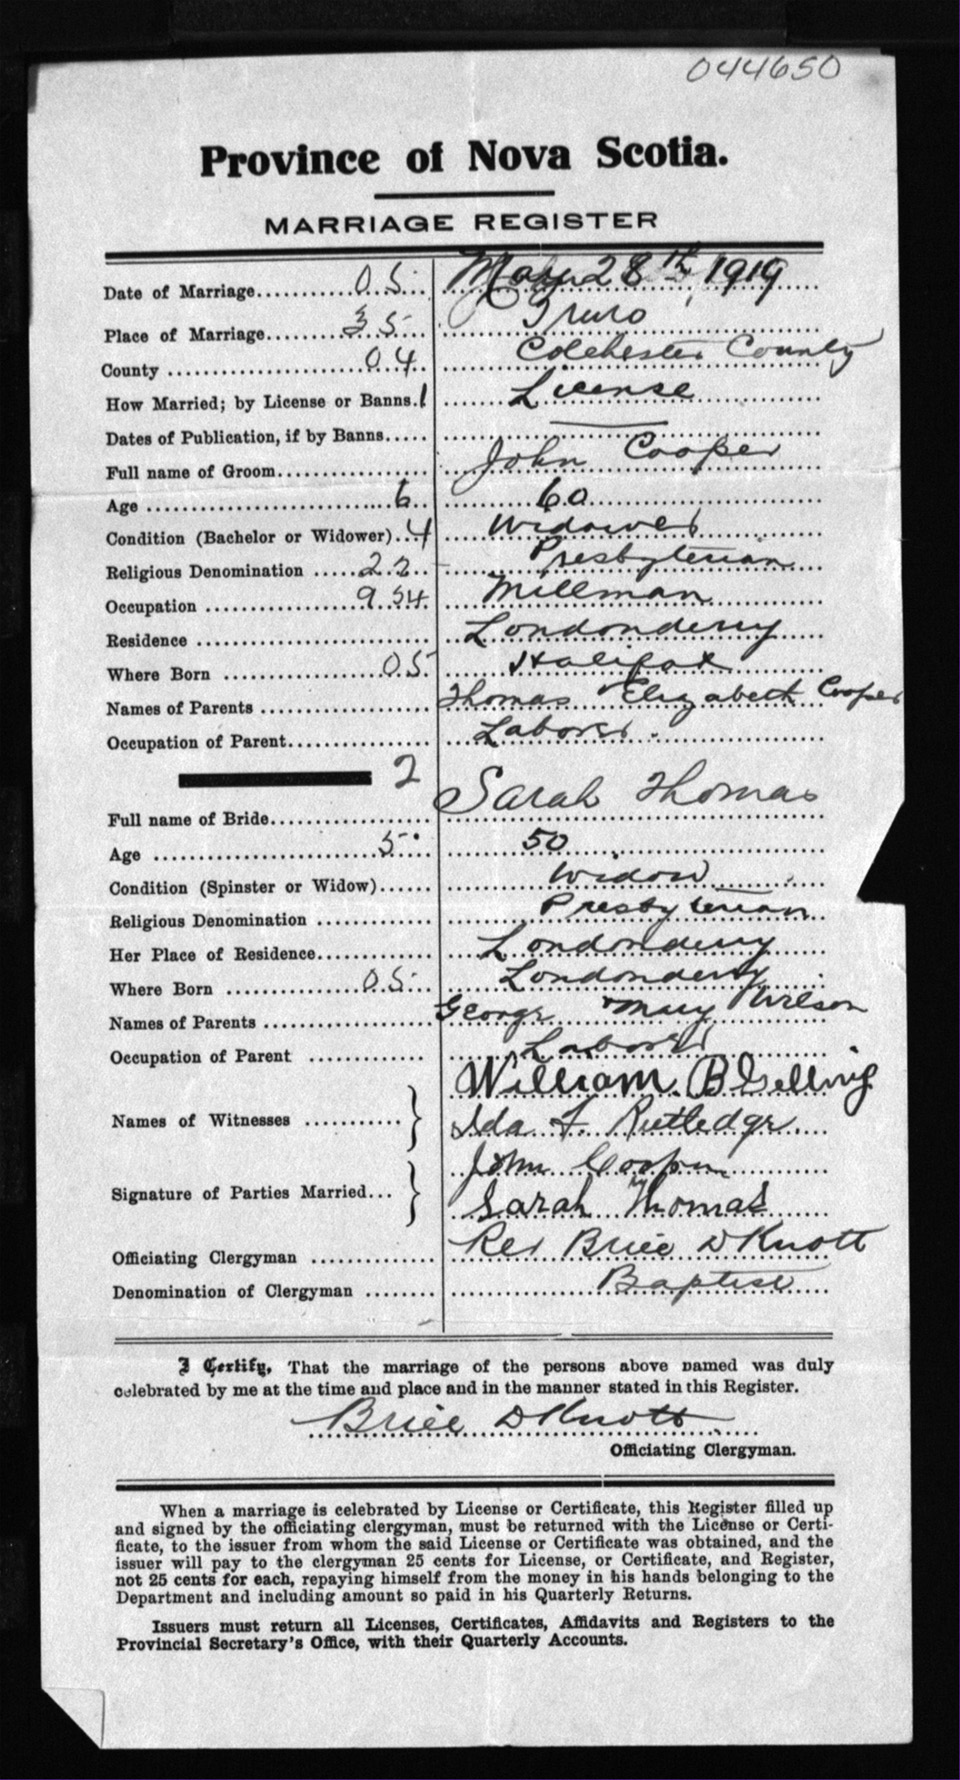 044650
Province of Nova Scotia.
MARRIAGE REGISTER
Date of Marriage............05... May 28th, 1919
Place of Marriage............35... Truro
County ............04... Colchester County
How Married; by License or Banns.1 License
Dates of Publication, if by Banns..... ——
Full name of Groom............ John Cooper
Age ............6.. 60
Condition (Bachelor or Widower)..4 Widower
Religious Denomination .....22 Presbyterian
Occupation ............954. Millman
Residence ............ Londonderry
Where Born ............05 Halifax
Names of Parents ............ Thomas Elizabeth Cooper
Occupation of Parent............ Laborer.
2
Full name of Bride............ Sarah Thomas
Age ............5... 50
Condition (Spinster or Widow)...... Widow
Religious Denomination ............ Presbyterian
Her Place of Residence............ Londonderry
Where Born ............05... Londonderry
Names of Parents ............ George Mary Wilson
Occupation of Parent ............ Laborer
Names of Witnesses ............ William. B Gelling
Ida F. Rutledge
Signature of Parties Married... John Cooper
Sarah Thomas
Officiating Clergyman ............ Rev Brice D Knott
Denomination of Clergyman ........ Baptist
I Certify, That the marriage of the persons above named was duly
celebrated by me at the time and place and in the manner stated in this Register.
Brice D Knott
Officiating Clergyman.
When a marriage is celebrated by License or Certificate, this Register filled up
and signed by the officiating clergyman, must be returned with the License or Certi-
ficate, to the issuer from whom the said License or Certificate was obtained, and the
issuer will pay to the clergyman 25 cents for License, or Certificate, and Register,
not 25 cents for each, repaying himself from the money in his hands belonging to the
Department and including amount so paid in his Quarterly Returns.
Issuers must return all Licenses, Certificates, Affidavits and Registers to the
Provincial Secretary's Office, with their Quarterly Accounts.